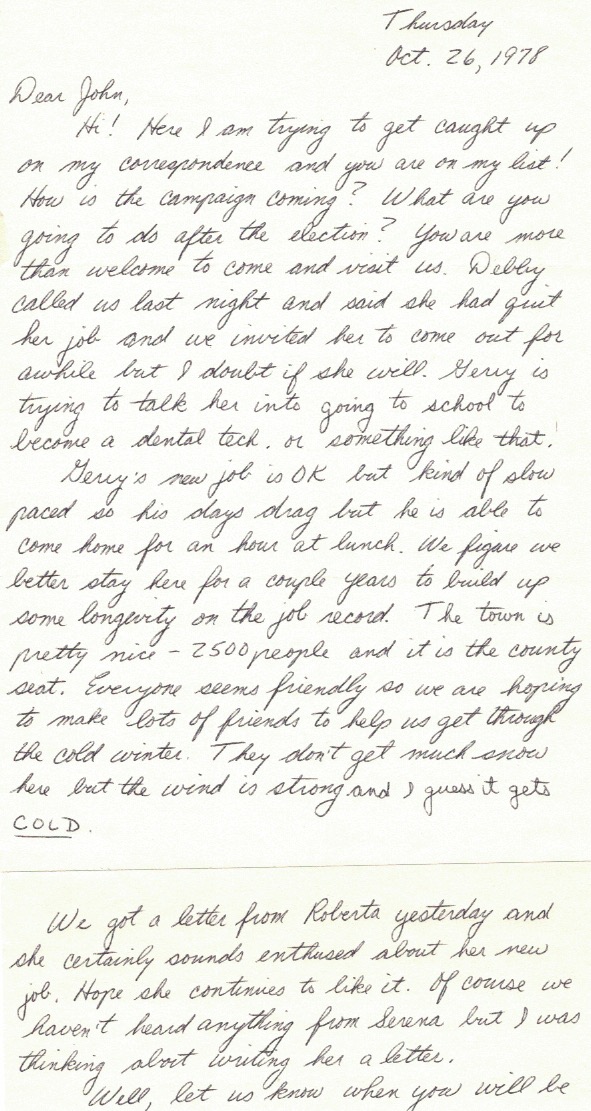 Thursday
Oct. 26, 1978
Dear John,
Hi! Here I am trying to get caught up
on my correspondence and you are on my list!
How is the campaign coming? What are you
going to do after the election? You are more
than welcome to come and visit us. Debby
called us last night and said she had quit
her job and we invited her to come out for
awhile but I doubt if she will. Gerry is
trying to talk her into going to school to
become a dental tech. or something like that.
Gerry's new job is OK but kind of slow
paced so his days drag but he is able to
come home for an hour at lunch. We figure we
better stay here for a couple years to build up
some longevity on the job record. The town is
pretty nice - 2500 people and it is the county
seat. Everyone seems friendly so we are hoping
to make lots of friends to help us get through
the cold winter. They don't get much snow
here but the wind is strong and I guess it gets
COLD.
We got a letter from Roberta yesterday and
she certainly sounds enthused about her new
job. Hope she continues to like it. Of course we
haven't heard anything from Serena but I was
thinking about writing her a letter.
Well, let us know when you will be